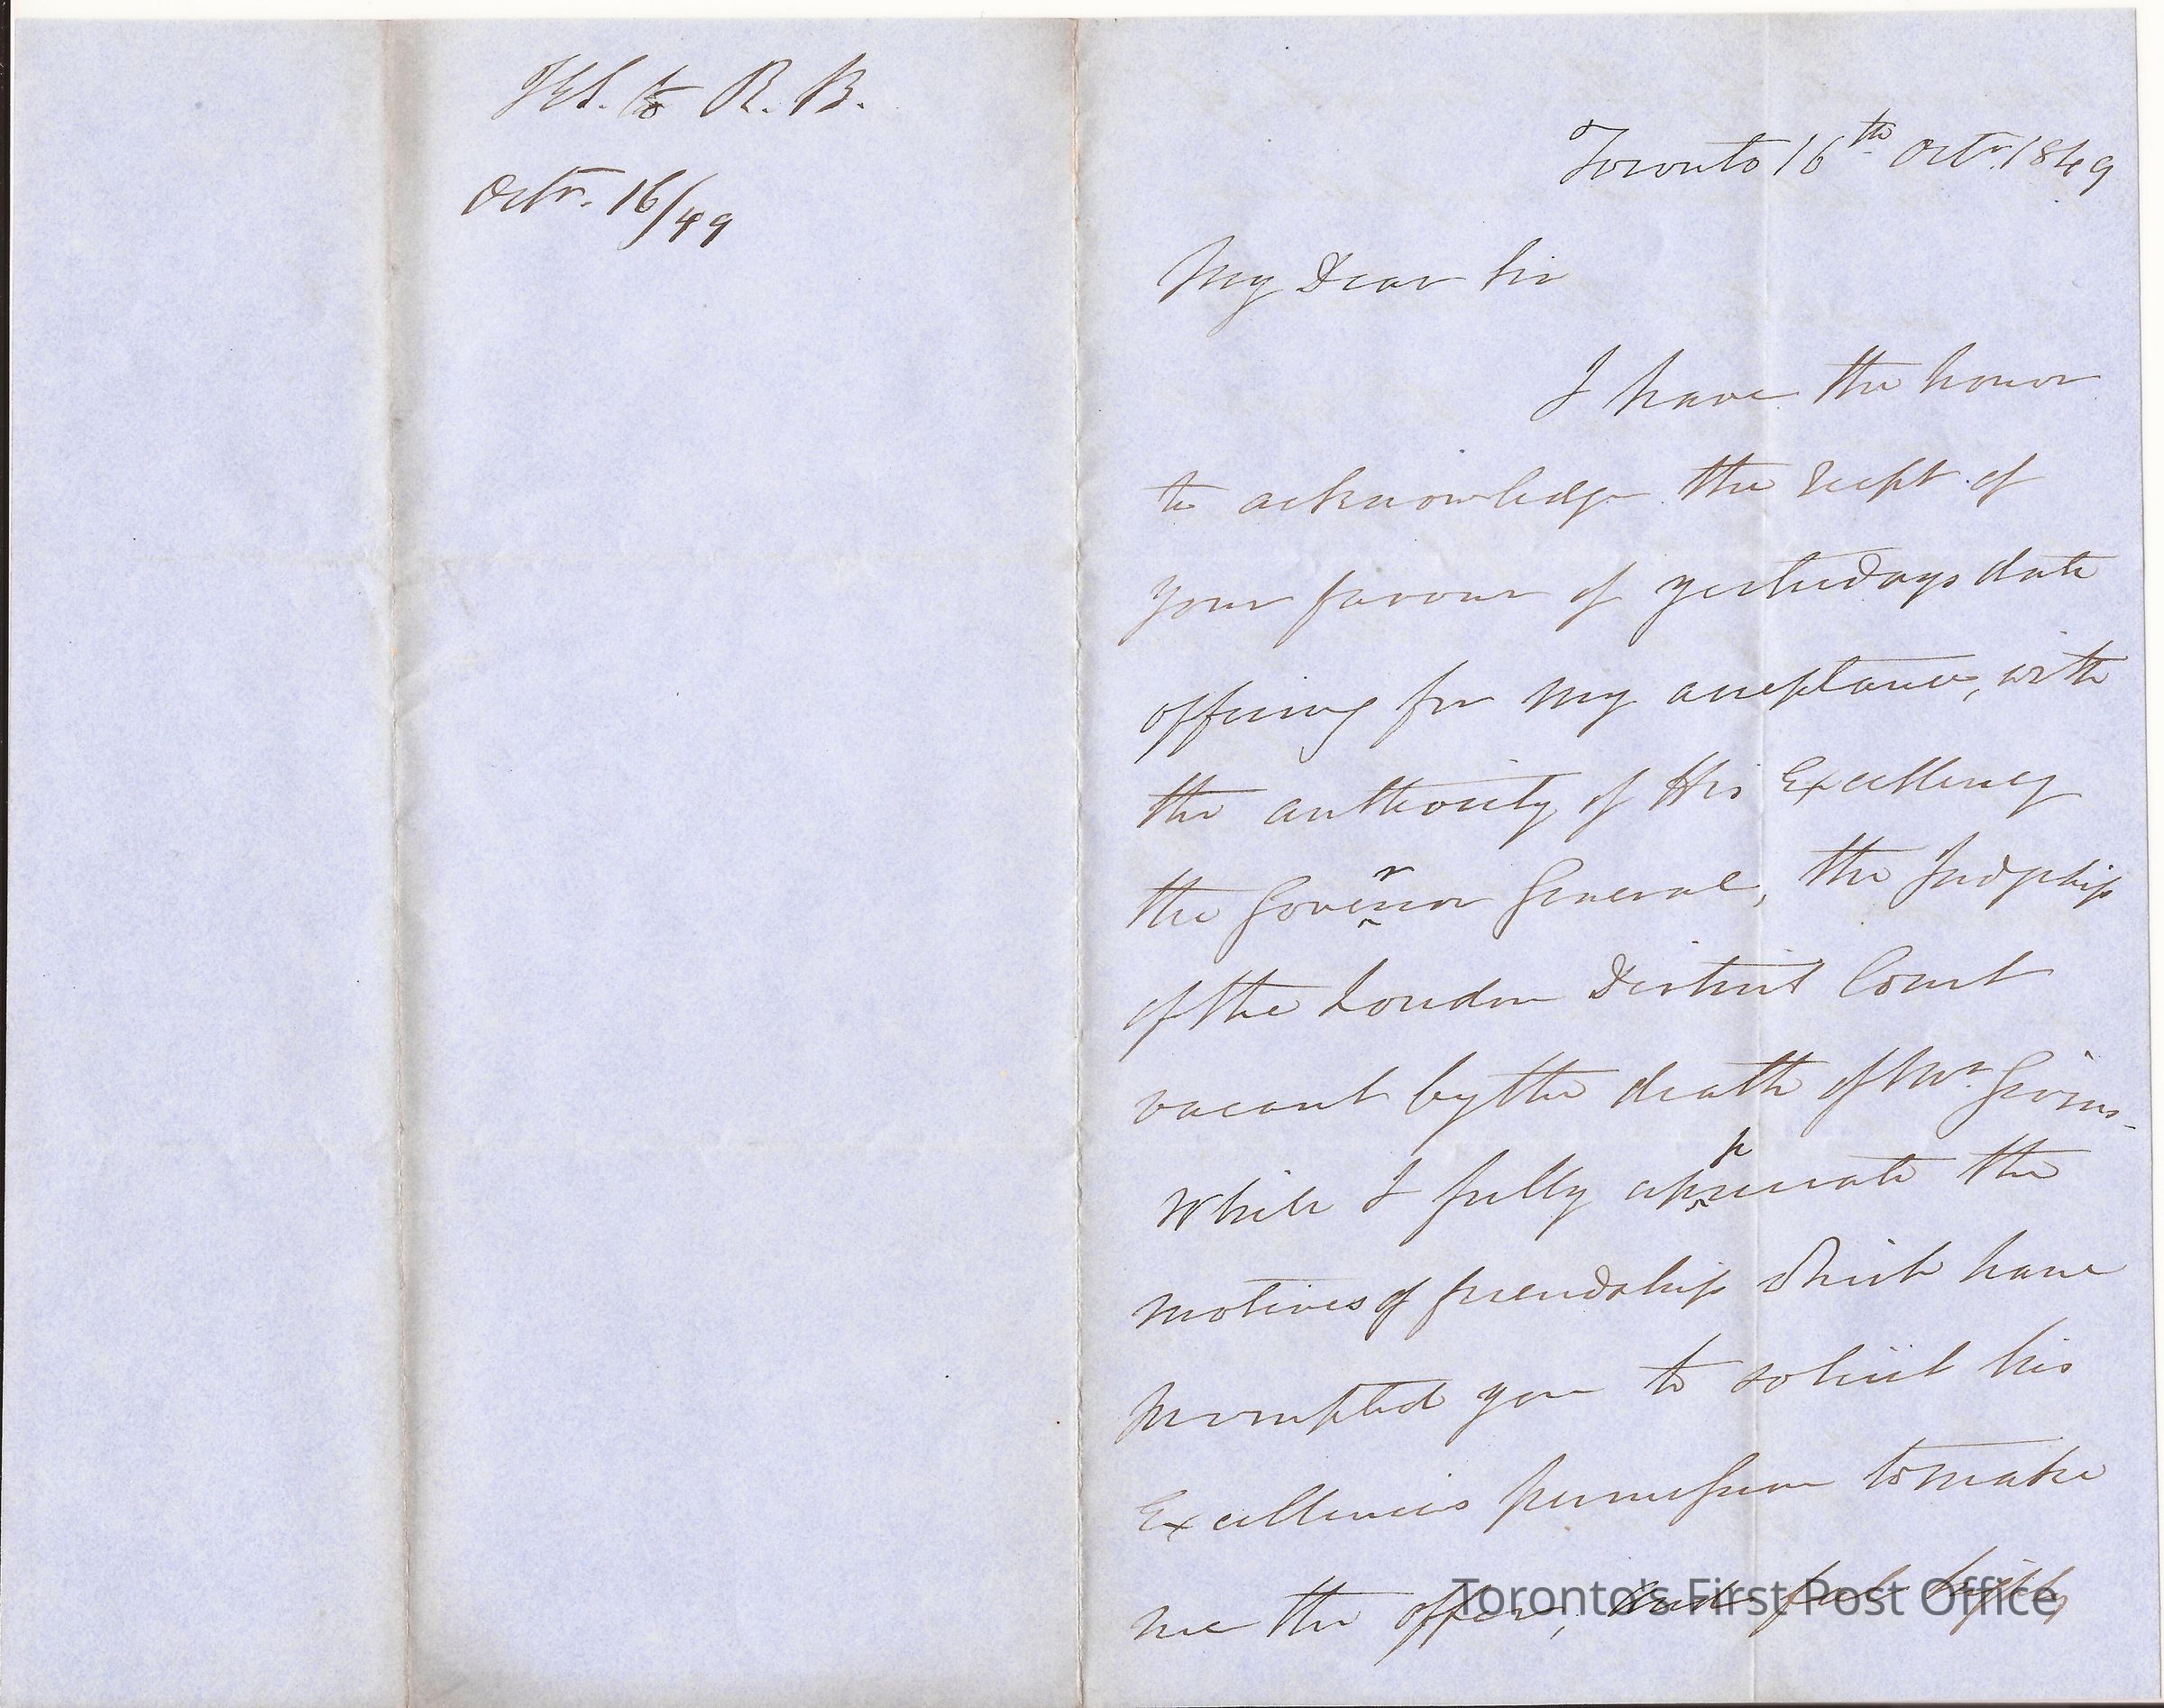 to R. B.
Octr. 16/49
Toronto 16th Octr. 1849
My Dear Sir
I have the honor
to acknowledge the rcept of
your favour of yesterdays date
offering for my acceptance, with
the authority of His Excellency
the Governor General, the Judgship
of the London District Court
vacant by the death of Mr. Givins.
While I fully appreciate the
motives of friendship which have
prompted you to solicit his
Excellencies permission to make
me the offer, and feel highly
Toronto's First Post Office